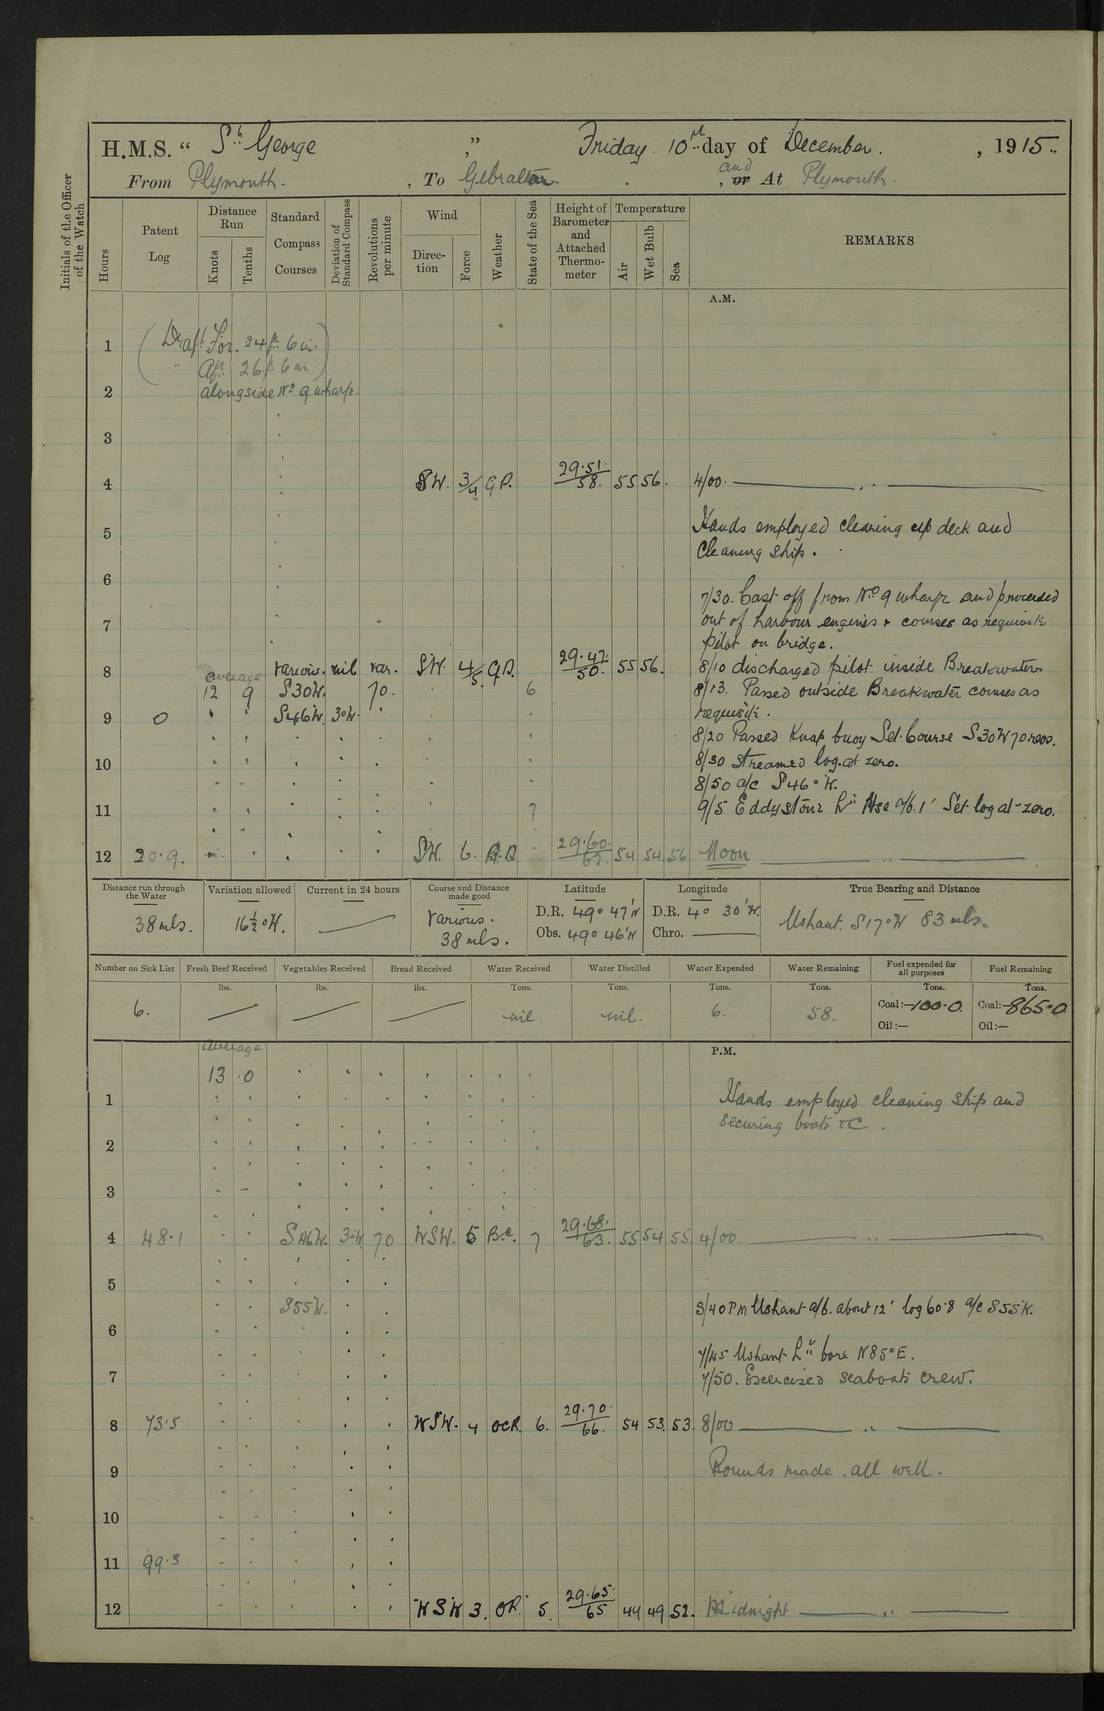 H.M.S. “ St. George ,” Friday 10th day of December , 1915
From Plymouth , To Gibraltar , and or At Plymouth
Initials of the Officer of the Watch
Hours
Patent Log
Distance Run
Knots
Tenths
Standard Compass Courses
Deviation of Standard Compass
Revolutions per minute
Wind
Direction
Force
Weather
State of the Sea
Height of Barometer and Attached Thermometer
Temperature
Air
Wet Bulb
Sea
REMARKS
A.M.
1 (Draft For. 24 ft. 6 in.
" Aft 26 ft 6 in)
2 alongside No 9 wharf
3
4 SW. 3/4 29.51/58. 55 56. 4/00.
5 Hands employed clearing up deck and
cleaning ship.
6
7/30. Cast off from No 9 wharf and proceeded
7 out of harbour engines & courses as requisite
pilot on bridge.
8 average various. nil var. SW. 4/5. 29.47/50. 55 56. 8/10 discharged pilot inside Breakwater
12 9 S30W. 70. 6 8/13. Passed outside Breakwater courses as
9 0 S46W. 3°W. requisite.
8/20 Passed Knap buoy Set Course S30W 70 revs.
10 8/30 Streamed log at zero.
8/50 a/c S46°W.
11 7 9/5 Eddystone Lt Hse a/b. 1' Set log at zero.
12 20.9. SW. 6. 29.60/62. 54 54 56 Noon
Distance run through the Water
Variation allowed
Current in 24 hours
Course and Distance made good
Latitude
Longitude
True Bearing and Distance
38 mls.
16½°W.
Various. 38 mls.
D.R. 49° 47'N
Obs. 49° 46'N
D.R. 4° 30'W.
Chro.
Ushant. S17°W 83 mls.
Number on Sick List
Fresh Beef Received
Vegetables Received
Bread Received
Water Received
Water Distilled
Water Expended
Water Remaining
Fuel expended for all purposes
Fuel Remaining
lbs. lbs. lbs. Tons. Tons. Tons. Tons. Tons. Tons.
6. nil. nil. 6. 58. Coal:—100.0. Coal:—865.0
Oil:— Oil:—
average P.M.
13 .0
1 Hands employed cleaning ship and
securing boats &C.
2
3
4 48.1 S46W. 3°W. 70 WSW. 5 B.c. 7 29.68./63. 55 54 55. 4/00
5
S55W. 5/40 PM Ushant a/b. about 12' log 60.8 a/c S55W.
6
7/45 Ushant Lt bore N85°E.
7 7/50. Exercised seaboats crew.
8 73.5 WSW. 4 OCR. 6. 29.70/66. 54 53. 53. 8/00
9 Rounds made. all well.
10
11 99.3
12 WSW 3. OR. 5. 29.65./65 44 49 52. Midnight